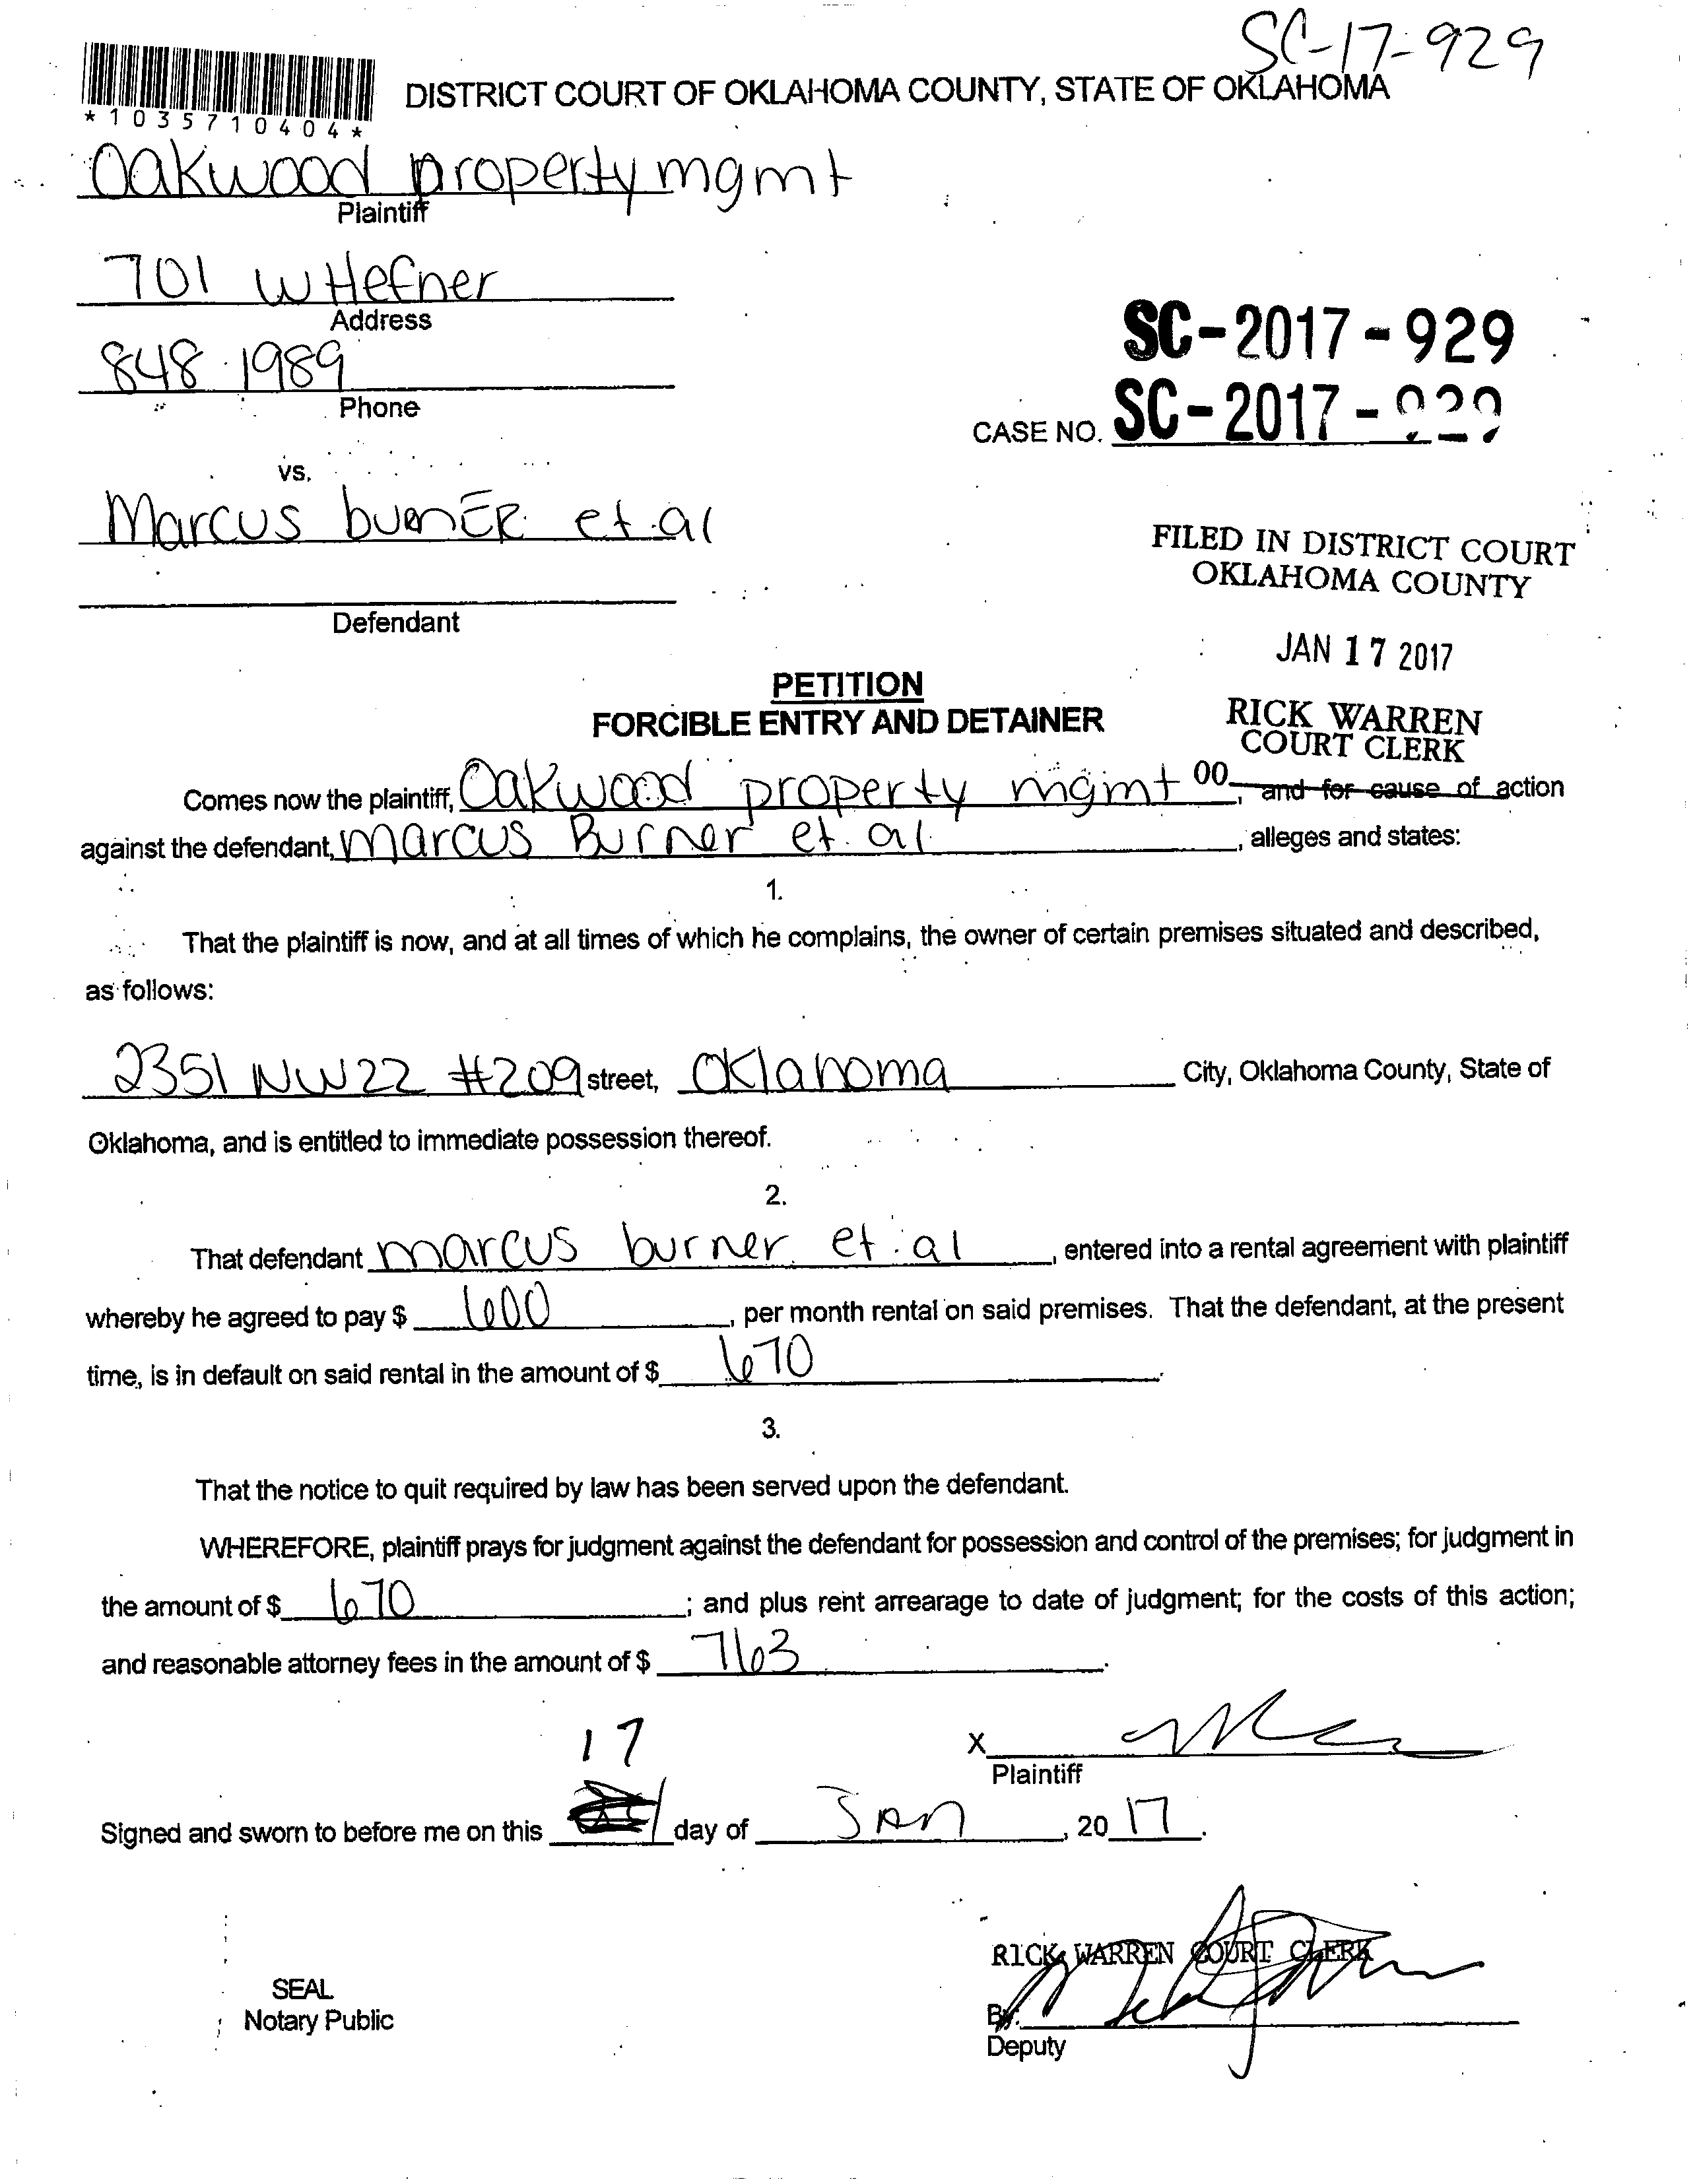 SC-17-929
*1035710404*
DISTRICT COURT OF OKLAHOMA COUNTY, STATE OF OKLAHOMA
Oakwood property mgmt
Plaintiff
701 W Hefner
Address
848-1989
Phone
SC-2017-929
CASE NO. SC-2017-929
vs.
Marcus burnER et.al
Defendant
FILED IN DISTRICT COURT
OKLAHOMA COUNTY
JAN 17 2017
RICK WARREN
COURT CLERK
PETITION
FORCIBLE ENTRY AND DETAINER
Comes now the plaintiff, Oakwood property mgmt 00, and for cause of action
against the defendant, Marcus Burner et. al, alleges and states:
1.
That the plaintiff is now, and at all times of which he complains, the owner of certain premises situated and described,
as follows:
2351 NW 22 #209 street, Oklahoma City, Oklahoma County, State of
Oklahoma, and is entitled to immediate possession thereof.
2.
That defendant marcus burner et. al, entered into a rental agreement with plaintiff
whereby he agreed to pay $ 600, per month rental on said premises. That the defendant, at the present
time, is in default on said rental in the amount of $ 670.
3.
That the notice to quit required by law has been served upon the defendant.
WHEREFORE, plaintiff prays for judgment against the defendant for possession and control of the premises; for judgment in
the amount of $ 670; and plus rent arrearage to date of judgment; for the costs of this action;
and reasonable attorney fees in the amount of $ 763.
X
Plaintiff
17
Signed and sworn to before me on this day of JAn, 2017.
RICK WARREN COURT CLERK
By:
Deputy
SEAL
Notary Public